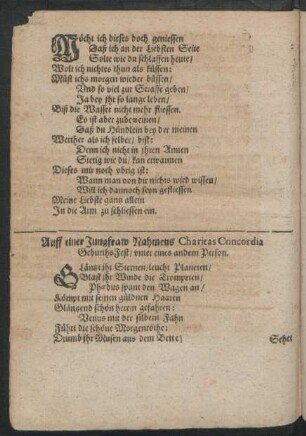 Möcht ich dieses doch geniessen
Daß ich an der Liebsten Seite
Solte wie du schlaffen heute/
Wolt ich nichtes thun als küssen:
Müst ichs morgen wieder büssen/
Vnd so viel zur Straffe geben/
Ja bey ihr so lange leben/
Biß die Wasser nicht mehr fliessen.
Es ist aber zubeweinen/
Daß du Hündlein bey der meinen
Werther als ich selber/ bist:
Denn ich nicht in ihren Armen
Stetig wie du/ kan erwarmen
Dieses mir noch übrig ist:
Wann man von dir nichts wird wissen/
Will ich dannoch seyn geflissen
Meine Liebste gantz allein
In die Arm zu schliessen ein.
Auff einer Jungfraw Nahmens Charitas Concordia
Geburths-Fest/ unter eines andern Person.
Gläntzt ihr Sternen/ leucht Planeten/
Blast ihr Winde die Trompeten/
Phœbus spann den Wagen an/
Kömpt mit seinen güldnen Haaren
Gläntzend schön herein gefahren:
Venus mit der silbern Fahn
Führt die schöne Morgenröthe:
Drumb ihr Musen aus dem Bette;
Sehet